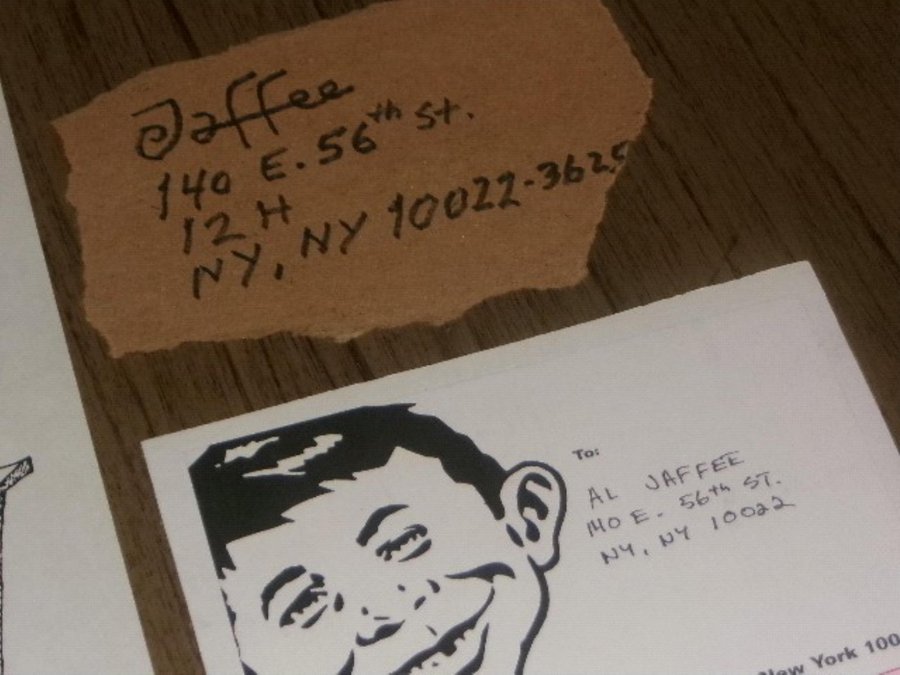 Jaffee
140 E. 56th St.
12 H
NY, NY 10022-3625
To:
AL JAFFEE
140 E. 56th ST.
NY, NY 10022
New York 100